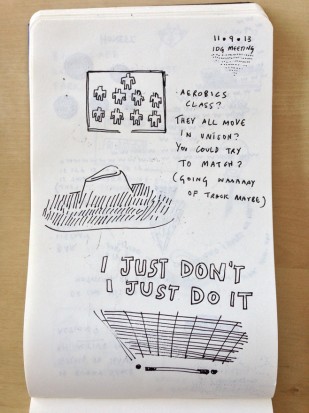 11 • 9 • 13
IDG MEETING
AEROBICS
CLASS?
THEY ALL MOVE
IN UNISON?
YOU COULD TRY
TO MATCH?
(GOING WAAAAAY
OF TRACK MAYBE)
I JUST DON'T
I JUST DO IT